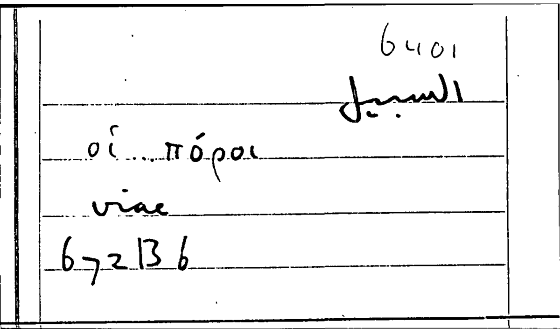 6401
οἱ πόροι
viae
672B6